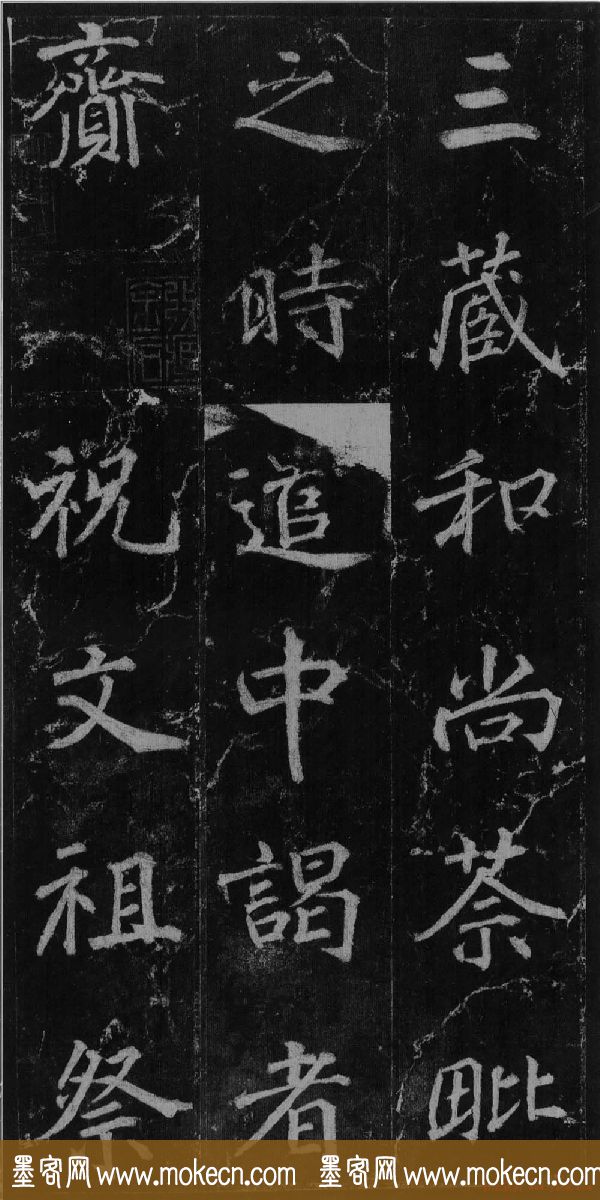 三藏和尚荼毗
之時遣中謁者
齎祝文祖祭
墨客网 www.mokecn.com 墨客网 www.mokecn.com